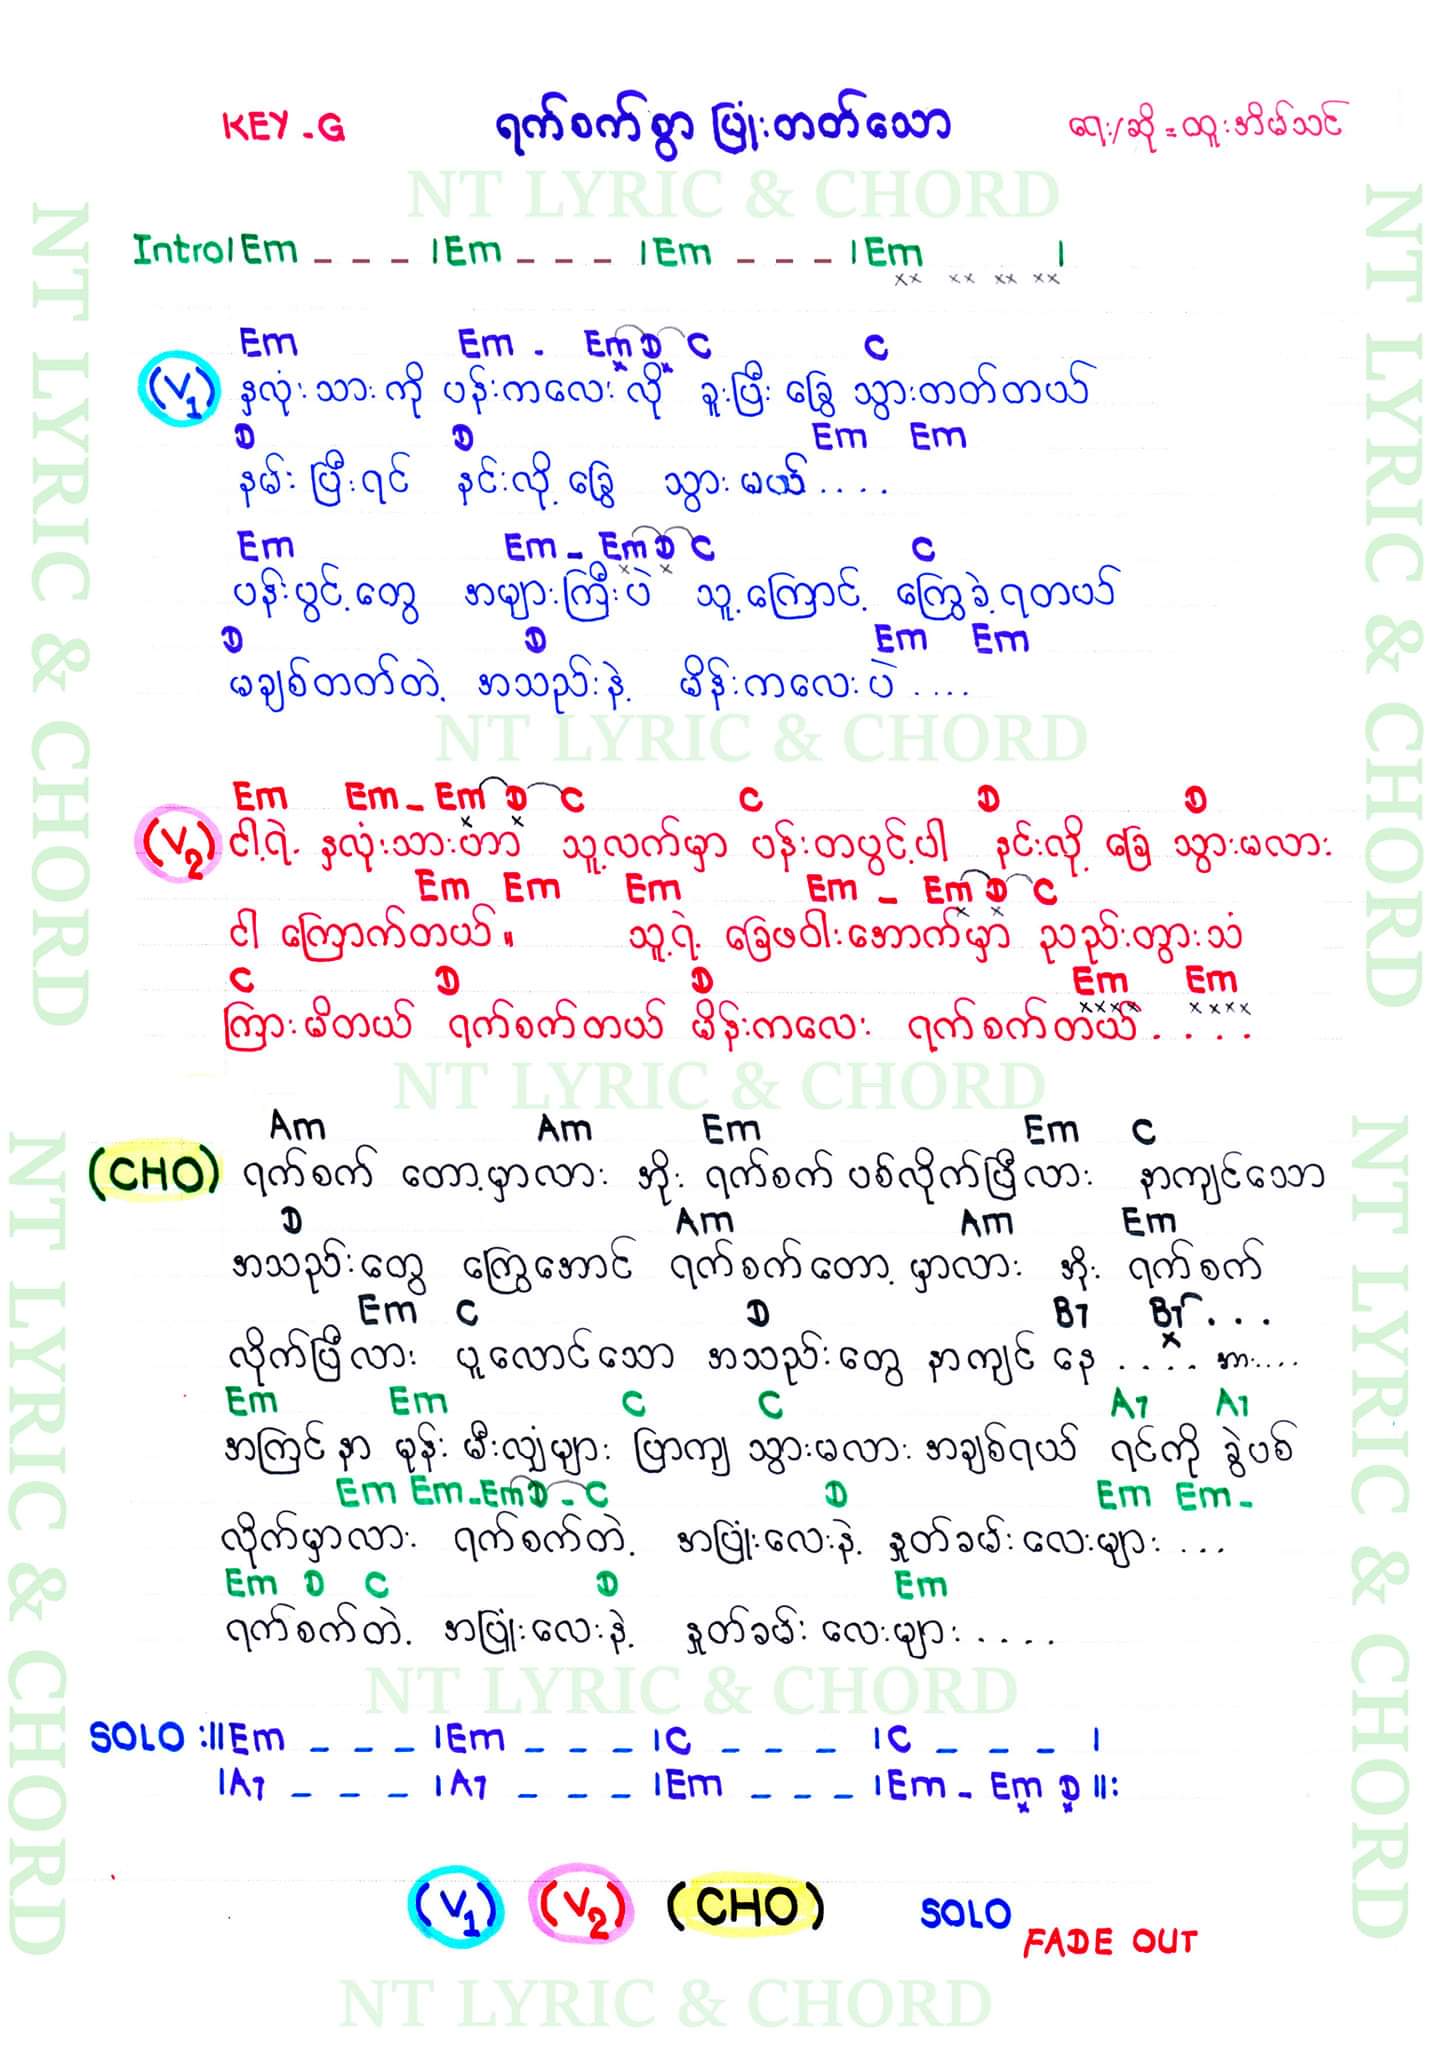 KEY - G ရက်စက်စွာ ပြုံးတတ်သော ရေး/ဆို = ထူးအိမ်သင်
NT LYRIC & CHORD
Intro | Em _ _ _ | Em _ _ _ | Em _ _ _ | Em |
xx xx xx xx
Em Em - Em D C C
(V1) နှလုံးသားကို ပန်းကလေးလို ခူးပြီး ခြွေ သွားတတ်တယ်
D D Em Em
နမ်းပြီးရင် နင်းလို့ ခြွေ သွားမယ် ....
Em Em - Em D C C
ပန်းပွင့်တွေ အများကြီးပဲ သူ့ကြောင့် ကြွေခဲ့ရတယ်
D D Em Em
မချစ်တတ်တဲ့ အသည်းနဲ့ မိန်းကလေးပဲ ....
NT LYRIC & CHORD
Em Em - Em D C C D D
(V2) ငါ့ရဲ့ နှလုံးသားဟာ သူ့လက်မှာ ပန်းတပွင့်ပါ နင်းလို့ ခြေ သွားမလား
Em Em Em Em - Em D C
ငါ ကြောက်တယ်။ သူ့ရဲ့ ခြေဖဝါးအောက်မှာ ညည်းတွားသံ
C D D Em Em
xxxx xxxx
ကြားမိတယ် ရက်စက်တယ် မိန်းကလေး ရက်စက်တယ် ....
NT LYRIC & CHORD
Am Am Em Em C
(CHO) ရက်စက် တော့မှာလား အိုး ရက်စက် ပစ်လိုက်ပြီလား နာကျင်သော
D Am Am Em
အသည်းတွေ ကြွေအောင် ရက်စက်တော့ မှာလား အိုး ရက်စက်
Em C D B7 B7 ...
လိုက်ပြီလား ပူလောင်သော အသည်းတွေ နာကျင် နေ .... အား....
Em Em C C A7 A7
အကြင်နာ မုန်း မီးလျှံများ ပြာကျ သွားမလား အချစ်ရယ် ရင်ကို ခွဲပစ်
Em Em - Em D - C D Em Em -
လိုက်မှာလား ရက်စက်တဲ့ အပြုံးလေးနဲ့ နှုတ်ခမ်းလေးများ ...
Em D C D Em
ရက်စက်တဲ့ အပြုံးလေးနဲ့ နှုတ်ခမ်းလေးများ ....
NT LYRIC & CHORD
SOLO :|| Em _ _ _ | Em _ _ _ | C _ _ _ | C _ _ _ |
| A7 _ _ _ | A7 _ _ _ | Em _ _ _ | Em - Em D ||:
(V1) (V2) (CHO) SOLO
FADE OUT
NT LYRIC & CHORD
NT LYRIC & CHORD
NT LYRIC & CHORD
NT LYRIC & CHORD
NT LYRIC & CHORD